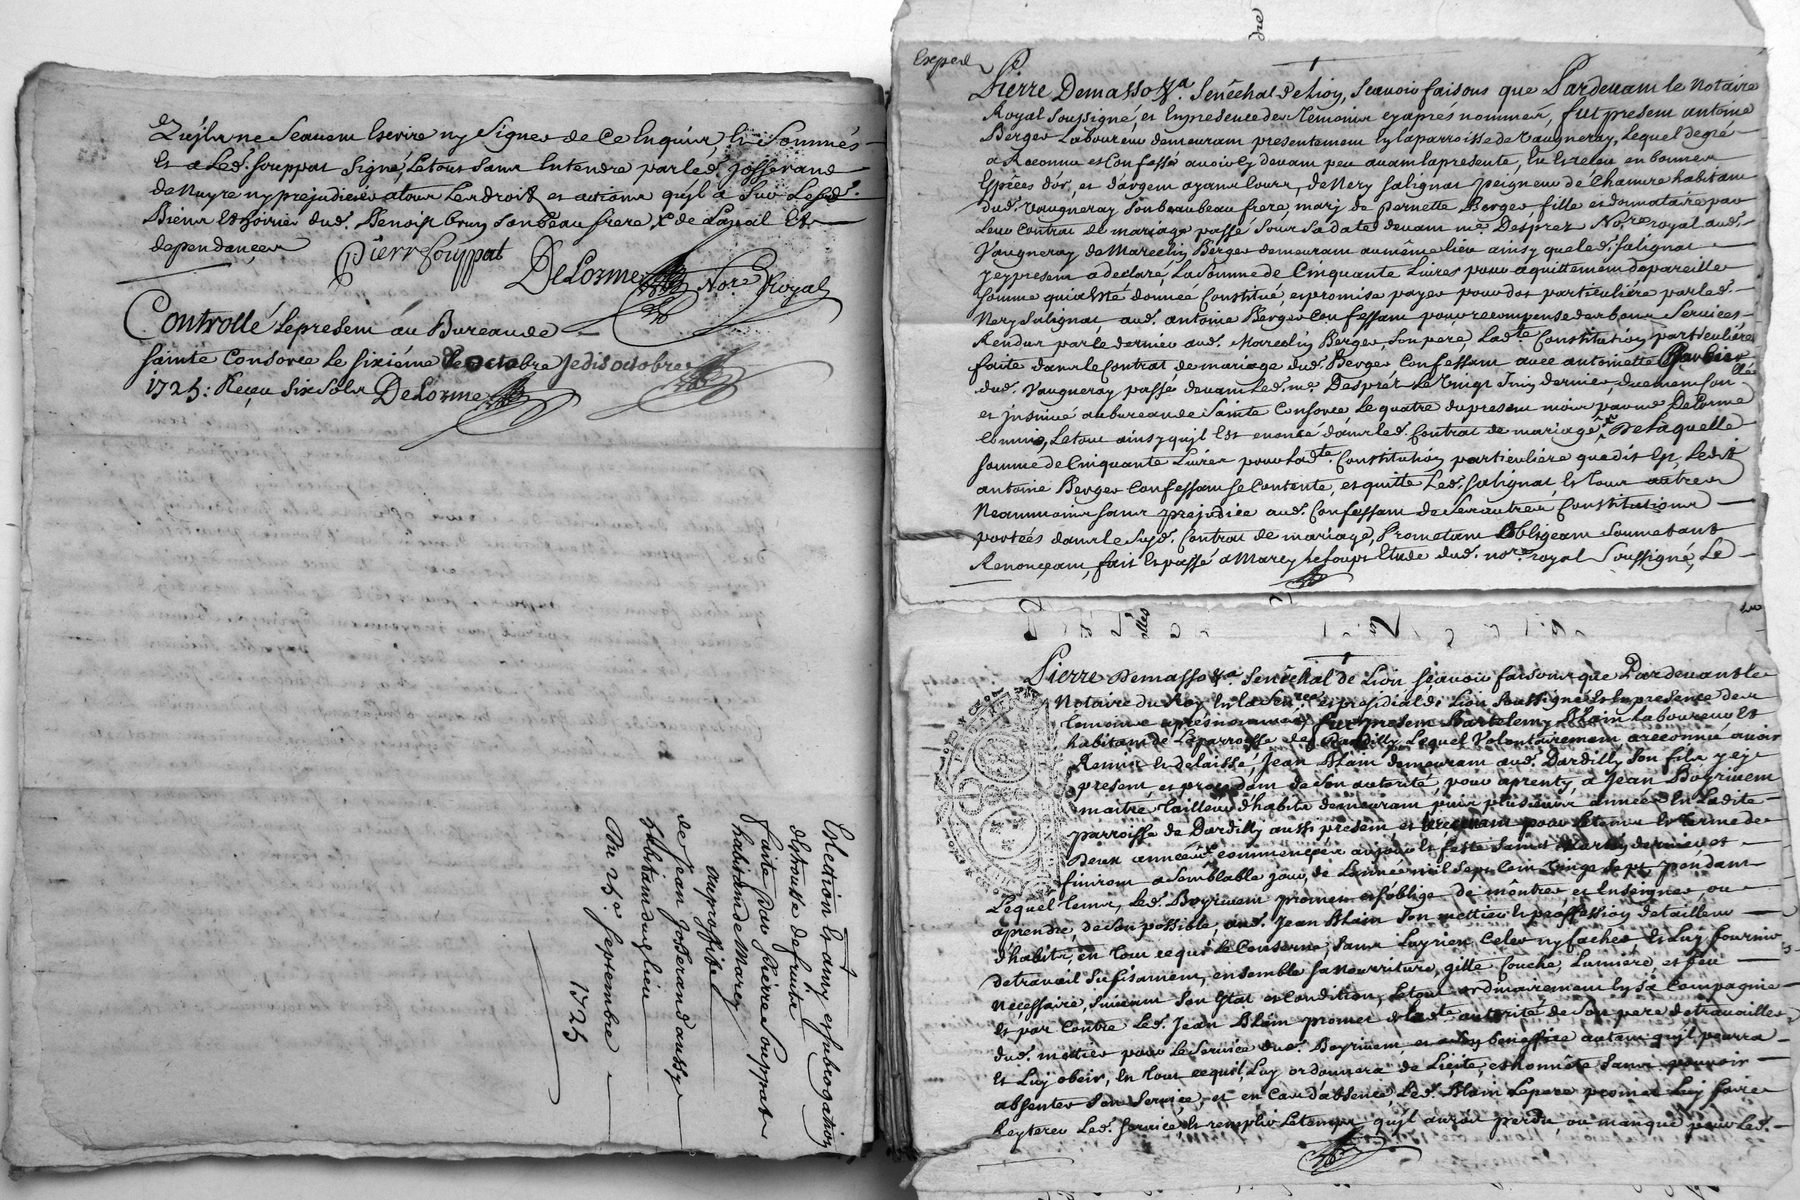 Qu'ils ne Scavent Escrire ny Signer de ce Enquis, et Sommés
et a Led. Souppat Signé, Le tout sans Entendre par led. Josserand
de Nuyre ny prejudicier a tous Les droits et actions qu'il a Sur Lesd.
Biens et hoiries dud. Benoist brun son beau frere
dependances
Pierr Souppat
DeLorme Nore Royal
Controllé Le present au Bureau de
Sainte Consorce Le sixiéme de octobre Je dis octobre
1725: Reçeu six sols DeLorme
Eslection en amy et subrogation
distraitte de fruits
faite par Pierre Souppat
habitant de Marcy
au proffit
de Jean Josserand aussy
habitant dud. lieu
Du 25e. Septembre
1725
Exped
Pierre Demasso &a. Senéchal de Lion, Scavoir faisons que Pardevant le Notaire
Royal Soussigné, et En presence des Temoins cy aprés nommés, fut present antoine
Berger Laboureur demeurant presentement En la parroisse de Vaugneray, Lequel de gré
a Reconnu et Confessé avoir Eu devant peu avant la presente, Eu et releu en bonnes
Espéces d'or, et d'argent ayant Cours, de Nery Salignat peigneur de Chanvre habitant
dud. Vaugneray Son beaubeau frere mary de pernette Berger fille et donnataire par
Leur Contrat de mariage passé Sous Sa date devant me. Despréz Nore. royal aud.
Vaugneray de Marcelin Berger demeurant au même lieu ainsy que led. Salignat
y present a declaré, La Somme de Cinquante Livres pour aquittement de pareille
Somme qui a esté donnée Constitué, et promise payer pour dot particuliére par led.
Nery Salignat aud. antoine Berger Confessant pour recompense des bons Services
Rendus par le dernier aud. Marcelin Berger, Son pere, Ladte Constitution particuliére
faite dans le Contrat de mariage dud. Berger Confessant avec antoinette
dud. Vaugneray passé devant Led. me. Despréz Le vingt Juin dernier, duement Con
et insinué au bureau de Sainte Consorce Le quatre du present mois par me DeLorme
Commis, Le tout ainsy qu'il Est enoncé dans led. Contrat de mariage, De Laquelle
Somme de Cinquante Livres pour Ladte. Constitution particuliére que dit Est, Ledit
antoine Berger Confessant se Contente, et quitte Led. Salignat, et Tous autres
Neanmoins sans prejudice aud. Confessant de Ses autres Constitutions
portées dans le Susd. Contrat de mariage, Prometant Obligeant Soumetant
Renonçeant, fait et passé a Marcy Le Loup, Etude dud. nore. royal Soussigné, Le
Pierre Demasso &a Senéchal de Lion sçavoir faisons que Pardevant le
Notaire du Roy En la Senée. et presidial de Lion Soussigné et En presence des
temoins aprés nommés fut present Bartelemy Blain Laboureur et
habitant de La parroisse de Dardilly Lequel Volontairement a reconnu avoir
Remis et delaissé, Jean Blain demeurant aud. Dardilly Son fils y
present, et procedant de Son autorité, pour aprenty, a Jean Boyrivent
maitre Tailleur d'habits demeurant puis plusieurs années En Ladite
parroisse de Dardilly aussi present, et pour le tems et terme de
deux années commencées au jour et feste Saint Martin dernier et
finiront a Semblable jour, de L'année mil Sept Cent vingt Sept pendant
Lequel tems, Led. Boyrivent promet et s'oblige de môntrer et Enseigner, ou
aprendre, de Son possible, aud. Jean Blain Son mettier et proffession de tailleur
d'habits, en tout ce qui Le Conserne Sans Luy rien Celer ny facher et Luy fournir
de travail Sufisament, ensemble Sa Nourriture, gitte Couche, Lumiére, et feu
Neçessaire, Suivant Son Etat et Condition, Le tout ordinairement En Sa Compagnie
et par Contre Led. Jean Blain promet de Ladte autorité de Son pere de travailler
dud. mettier pour Le Service dud. Boyrivent, et en Son beneffice autant qu'il pourra
et Luy obeir, En tout ce qu'il Luy ordonnera de Licite, et honnête Sans pouvoir
absenter Son Service, et en Cas d'absence, Led. Blain Le pere promet Luy faire
Reyterer Led. Service et remplir Le temps qu'il auroit perdu, ou manqué pour Led.